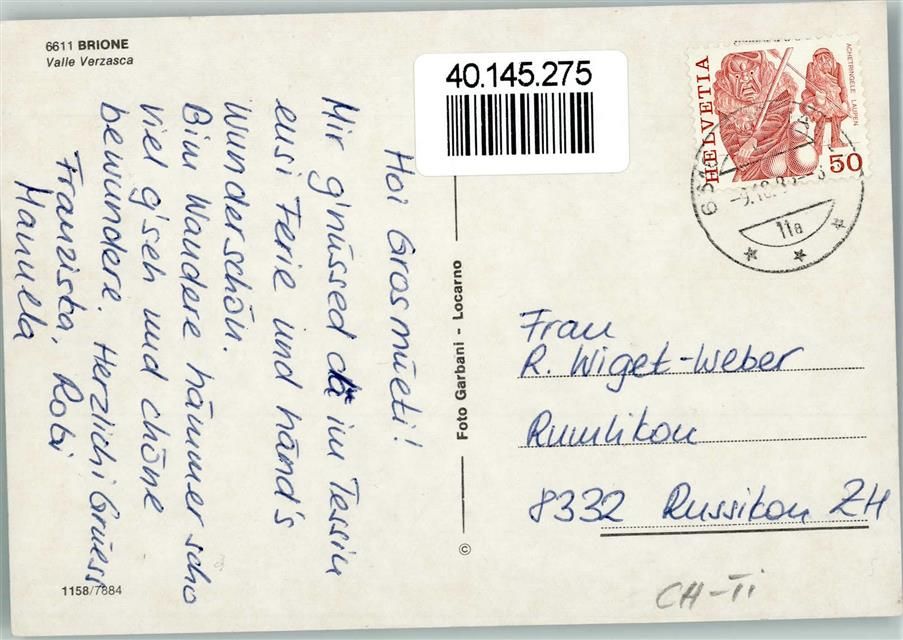 6611 BRIONE
Valle Verzasca
Hoi Grosmüeti!
Mir g'nüssed da im Tessin
eusi Ferie und händ's
Wunderschön.
Bim Wandere hämmer scho
viel g'seh und chöne
bewundere. Herzlichi Grüess
Franziska, Robi
Manuela
1158/7884
Foto Garbani - Locarno
©
40.145.275
HELVETIA
ACHETRINGELE LAUPEN
50
11a
Frau
R. Wiget-Weber
Rumlikon
8332 Russikon ZH
CH-Ti